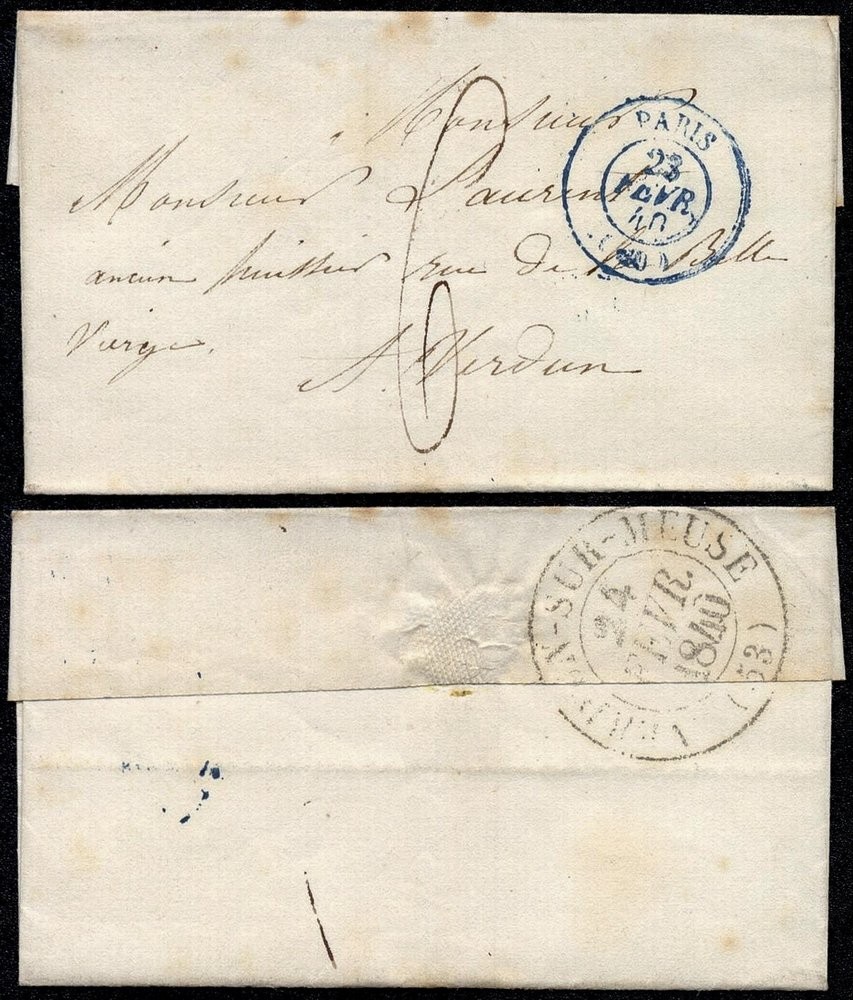 Monsieur
Monsieur Laurent
ancien huissier rue de la Belle
Vierge.
A Verdun
PARIS
23
FEVR
40
(60)
VERDUN-SUR-MEUSE
24
FEVR.
1840
(53)